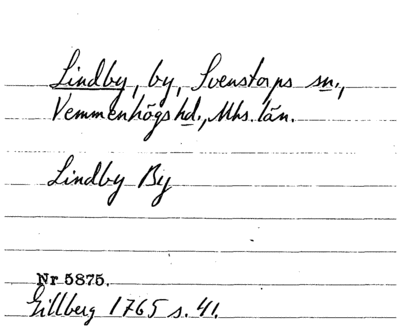 Lindby, by, Svenstorps sn.,
Vemmenhögs hd., Mhs. län.
Lindby By
Nr 5875.
Gillberg 1765 s. 41.